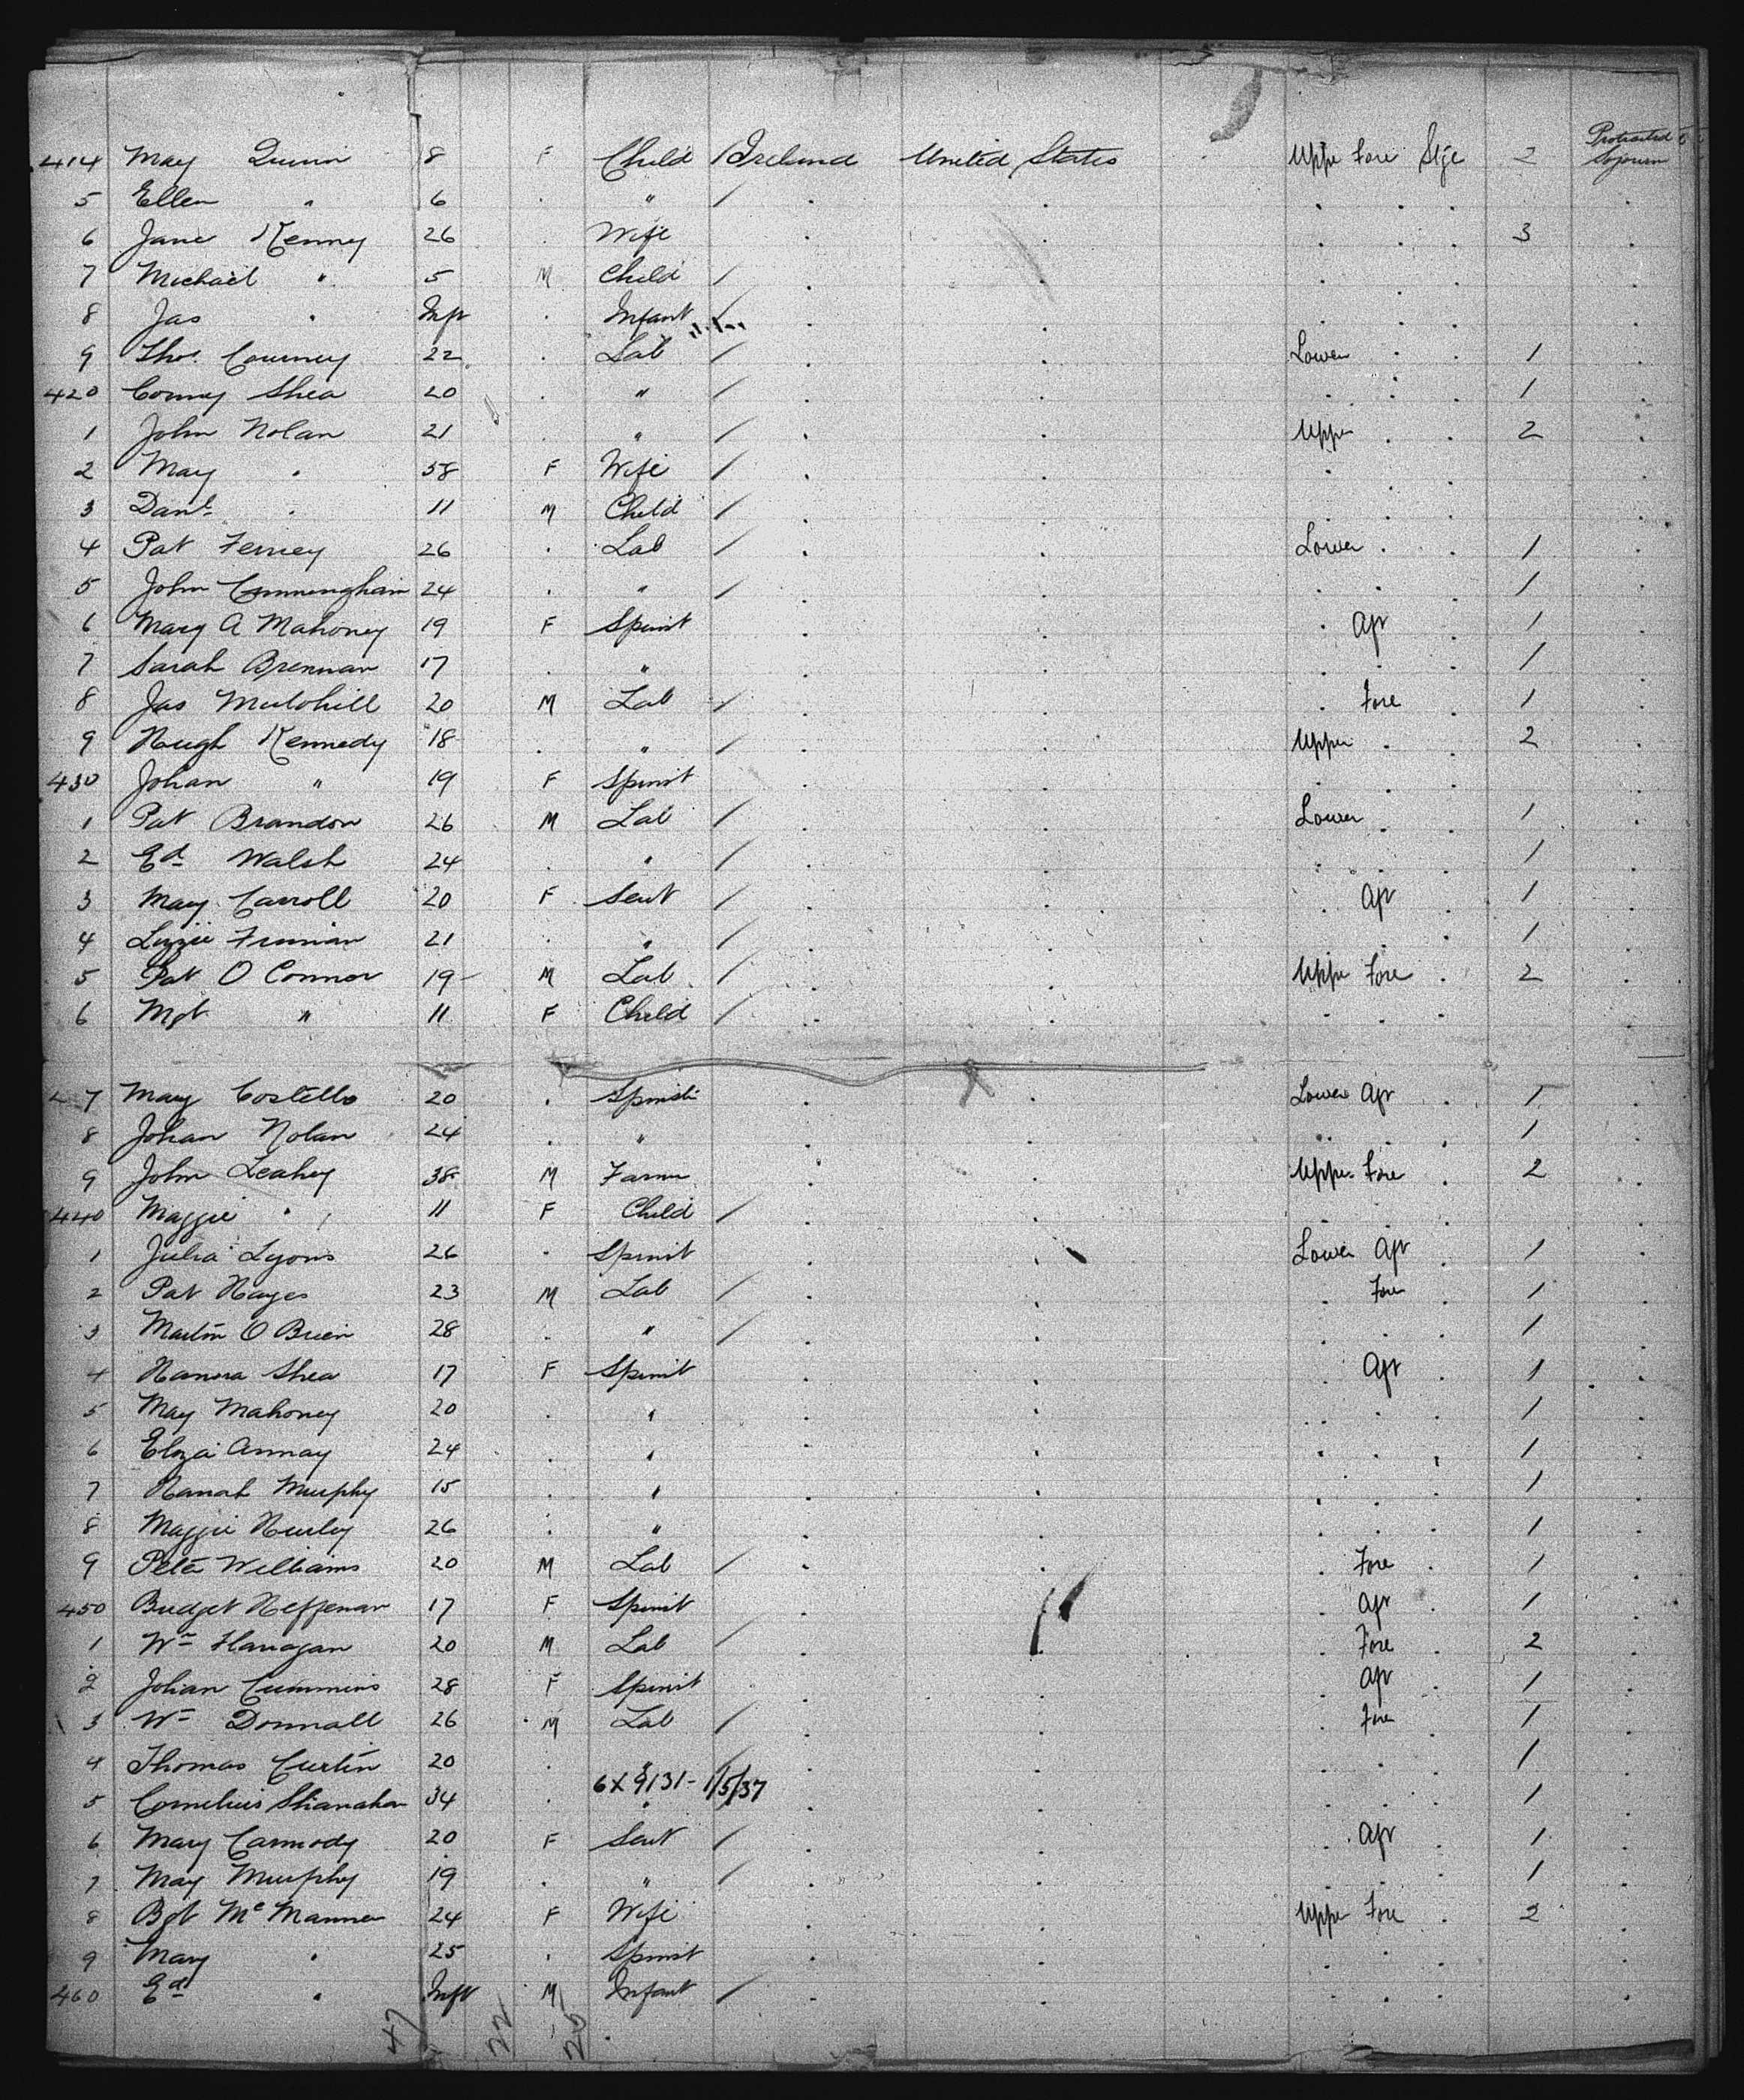 414 May Quinn 8 F Child Ireland United States Uppr Fore Stge 2 Protracted Sojourn
5 Ellen " 6 . " . . . . . .
6 Jane Kenny 26 . Wife . . . . . 3 .
7 Michael " 5 M Child . . . . . .
8 Jas " Inft . Infant . . . . . .
9 Thos. Courney 22 . Lab . . Lower . . 1 .
420 Conny Shea 20 . " . . . . . 1 .
1 John Nolan 21 . " . . Upper . . 2 .
2 May " 58 F Wife . . . . . .
3 Danl " 11 M Child . . . . . .
4 Pat Ferney 26 . Lab . . Lower . . 1 .
5 John Cunningham 24 . " . . . . . 1 .
6 Mary A Mahoney 19 F Spinst . . . Apt . 1 .
7 Sarah Brennan 17 . " . . . . . 1 .
8 Jas Mulohill 20 M Lab . . . Fore . 1 .
9 Hugh Kennedy 18 . " . . Upper . . 2 .
430 Johan " 19 F Spinst . . . . . .
1 Pat Brandon 26 M Lab . . Lower . . 1 .
2 Ed Walsh 24 . " . . . . . 1 .
3 Mary Carroll 20 F Sevt . . . Apt . 1 .
4 Lizzie 21 . " . . . . . 1 .
5 Pat O Connor 19 M Lab . . Uppr Fore . 2 .
6 Mgt " 11 F Child . . . . . .
7 Mary Costello 20 . Spinst . . Lower Apt . 1 .
8 Johan Nolan 24 . " . . . . . 1 .
9 John Leahy 38 M Farmr . . Upper Fore . 2 .
440 Maggie " 11 F Child . . . . . .
1 Julia Lyons 26 . Spinst . . Lower Apt . 1 .
2 Pat Hayes 23 M Lab . . . Fore . 1 .
3 Martin O Brien 28 . " . . . . . 1 .
4 Hanora Shea 17 F Spinst . . . Apt . 1 .
5 May Mahoney 20 . " . . . . . 1 .
6 Eliza Annay 24 . " . . . . . 1 .
7 Hanah Murphy 15 . " . . . . . 1 .
8 Maggie Hurley 26 . " . . . . . 1 .
9 Peter Williams 20 M Lab . . . Fore . 1 .
450 Bridget Heffenan 17 F Spinst . . . Apt . 1 .
1 Wm Flanagan 20 M Lab . . . Fore . 2 .
2 Johan Cummins 28 F Spinst . . . Apt . 1 .
3 Wm Donnall 26 M Lab . . . Fore . 1 .
4 Thomas Curtin 20 . " . . . . . 1 .
6X9131-1/5/37
5 Cornelius Shanahan 34 . " . . . . . 1 .
6 Mary Carmody 20 F Sevt . . . Apt . 1 .
7 May Murphy 19 . " . . . . . 1 .
8 Bgt McManner 24 F Wife . . Uppr Fore . 2 .
9 Mary " 25 . Spinst . . . . . .
460 Ed " Inft M Infant . . . . . .
47 22 25